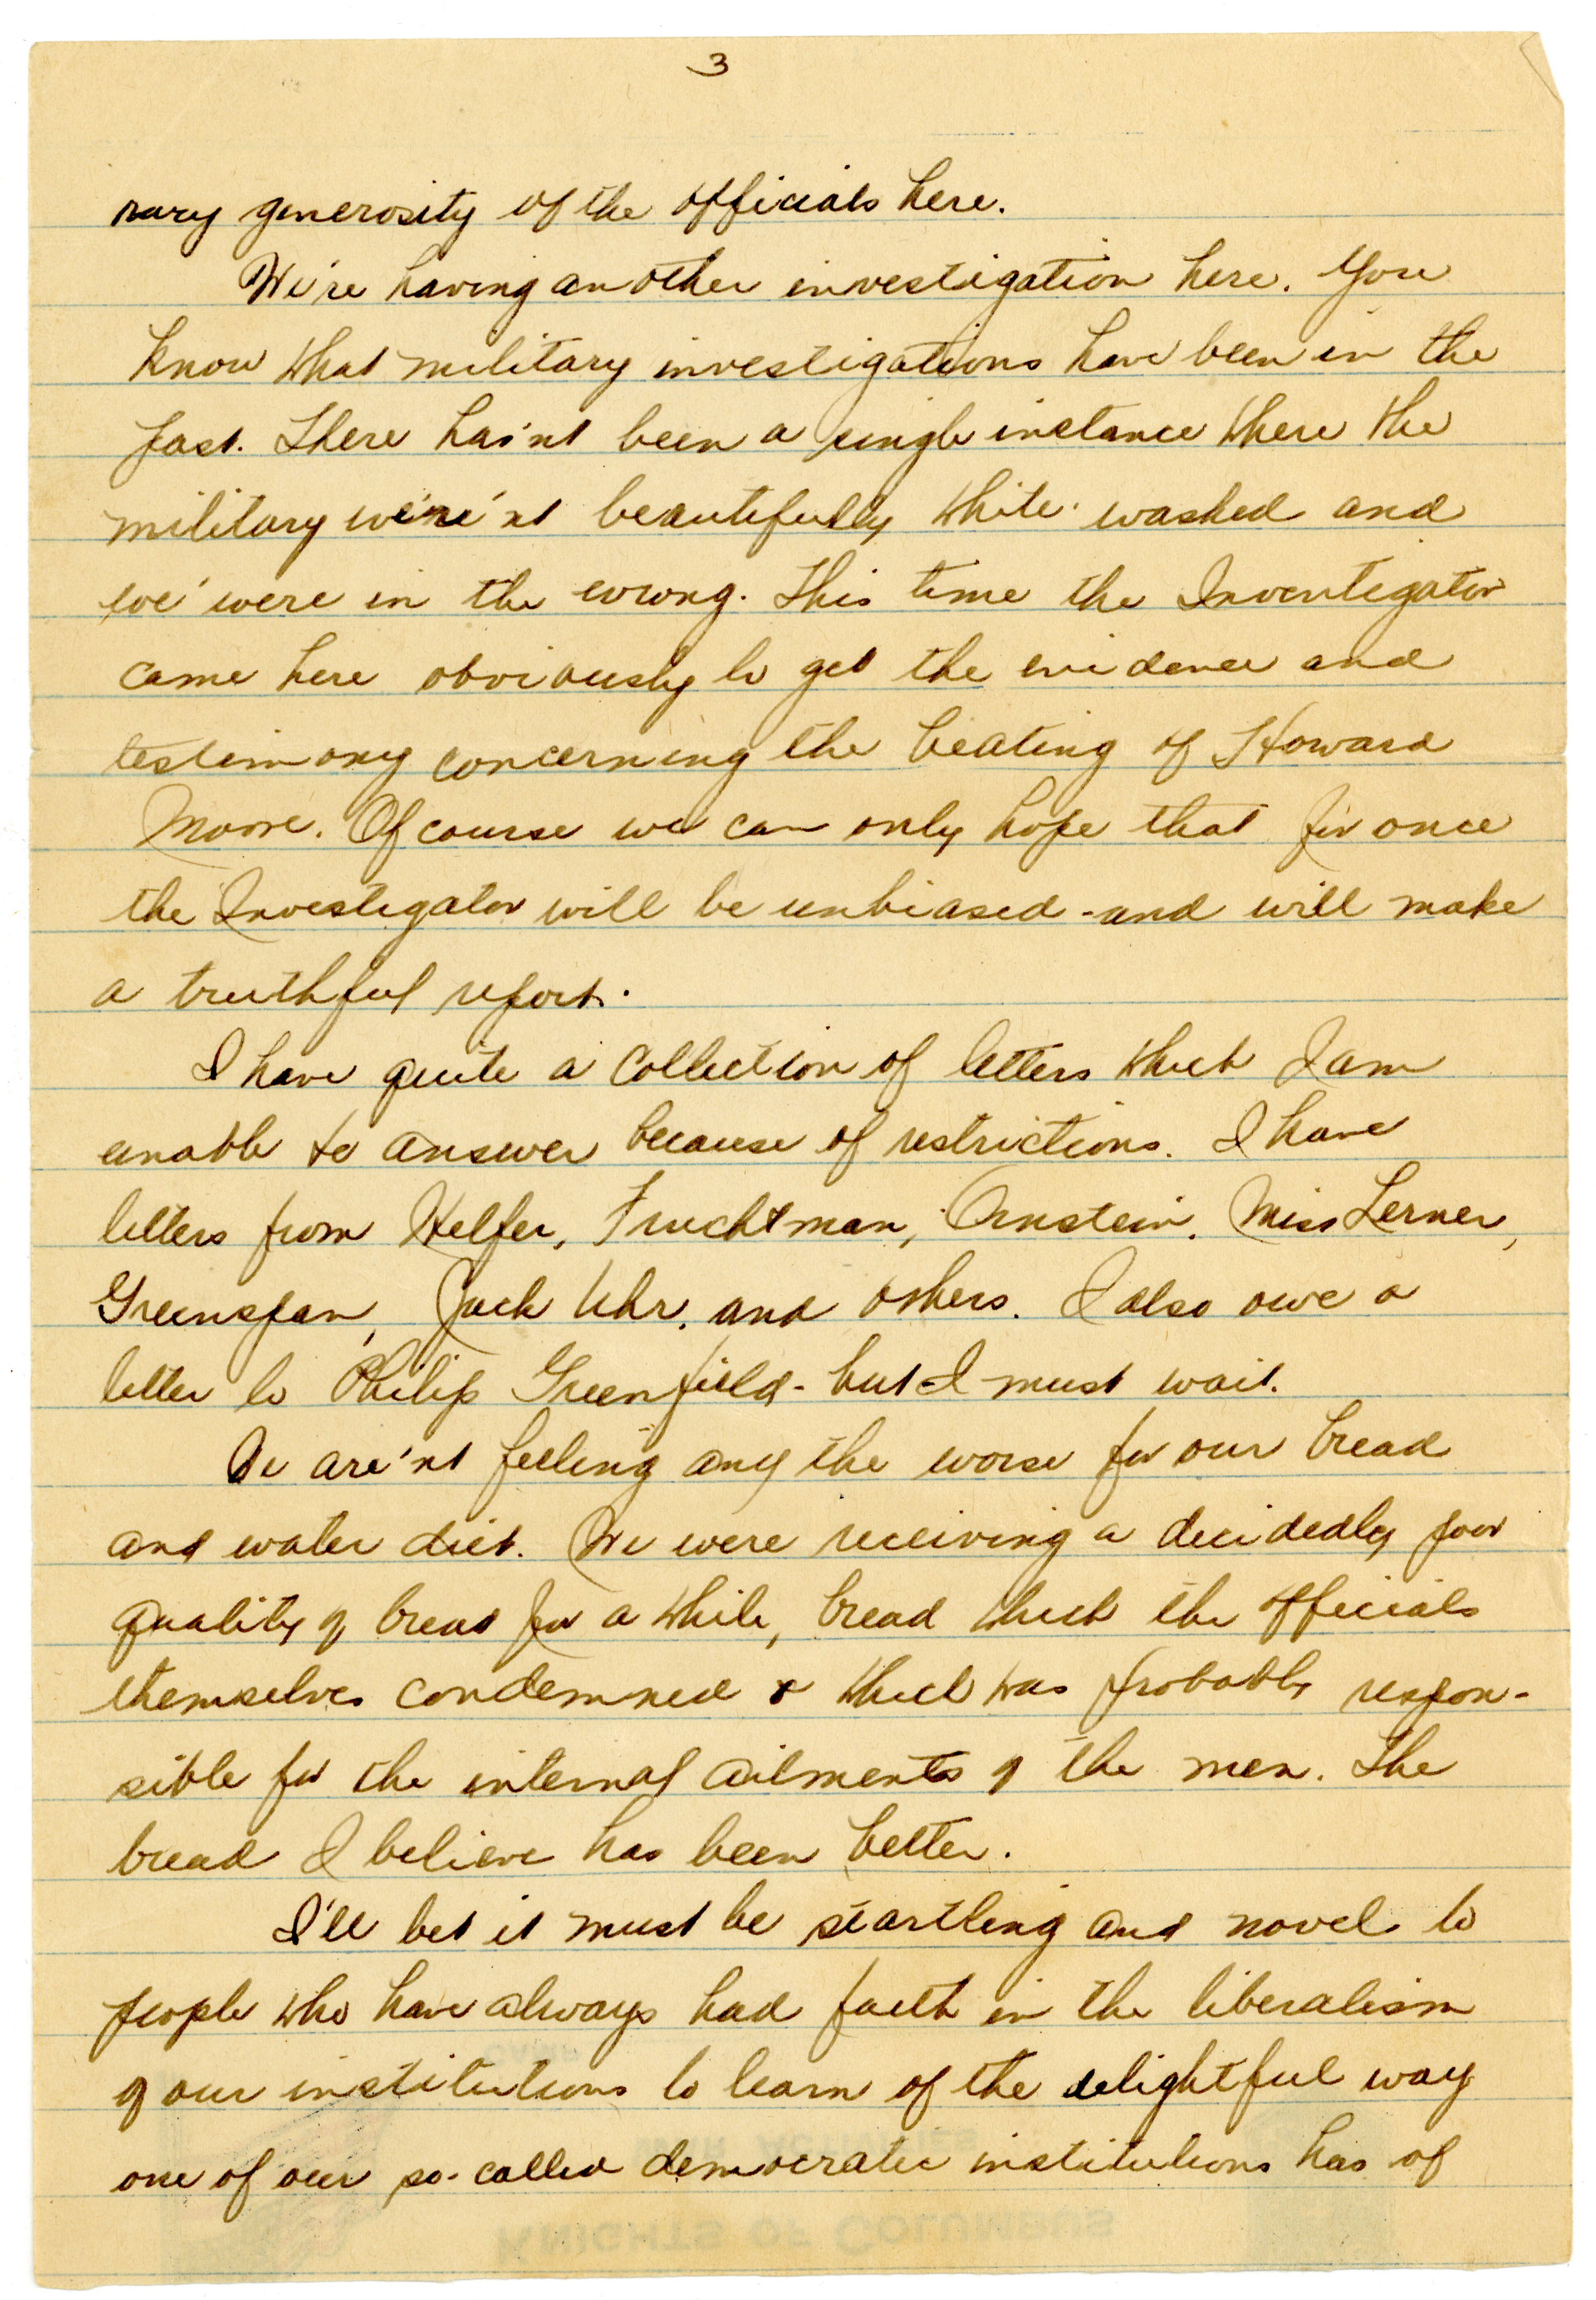 3
nary generosity of the officials here.
We're having another investigation here. You
know what military investigations have been in the
past. There has'nt been a single instance where the
military were'nt beautifully white-washed and
we were in the wrong. This time the Investigator
came here obviously to get the evidence and
testimony concerning the beating of Howard
Moore. Of course we can only hope that for once
the Investigator will be unbiased - and will make
a truthful report.
I have quite a collection of letters which I am
unable to answer because of restrictions. I have
letters from Helfer, Fruchtman, Ornstein, Miss Lerner,
Greenspan, Jack Uhr, and others. I also owe a
letter to Philip Greenfield - but I must wait.
We are'nt feeling any the worse for our bread
and water diet. We were receiving a decidedly poor
quality of bread for a while, bread which the officials
themselves condemned & which was probably respon-
sible for the internal ailments of the men. The
bread I believe has been better.
I'll bet it must be startling and novel to
people who have always had faith in the liberalism
of our institutions to learn of the delightful way
one of our so-called democratic institutions has of
WAR ACTIVITIES
KNIGHTS OF COLUMBUS